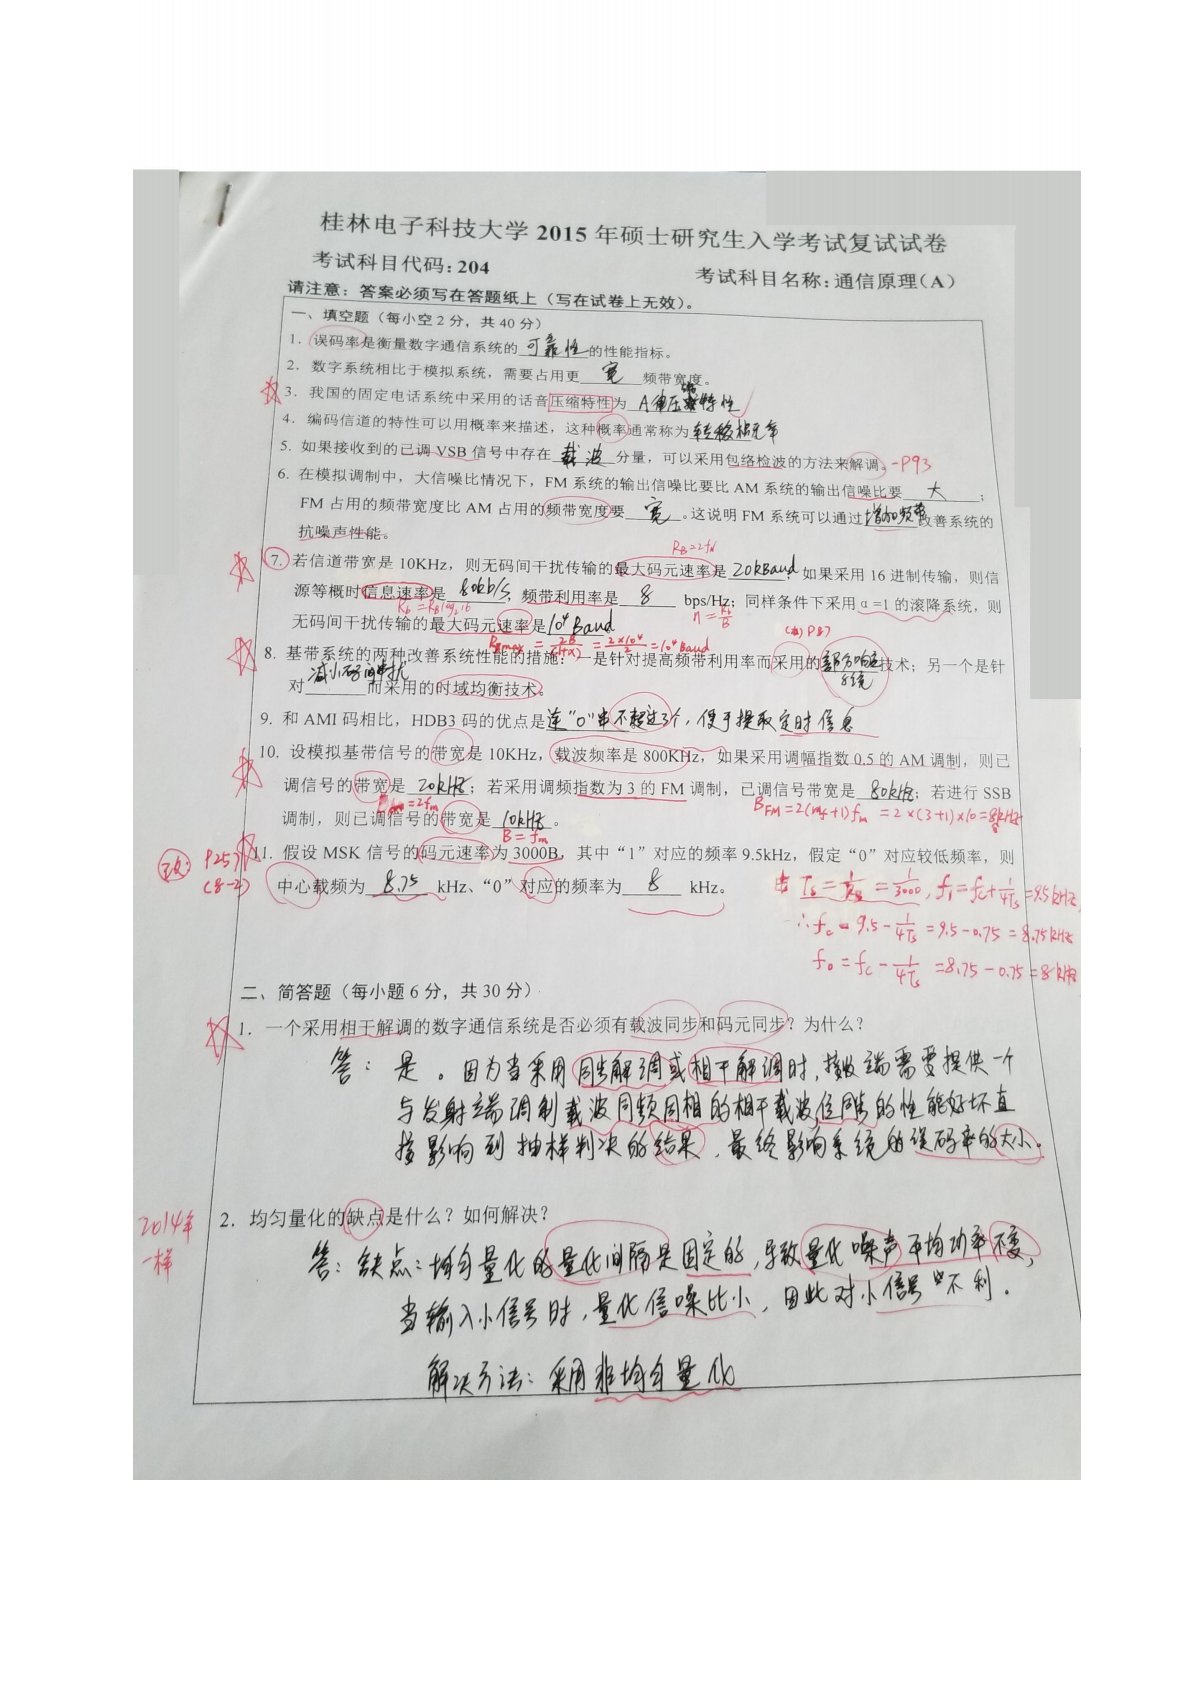 桂林电子科技大学 2015 年硕士研究生入学考试复试试卷
考试科目代码: 204 考试科目名称: 通信原理(A)
请注意: 答案必须写在答题纸上(写在试卷上无效)。
一、填空题(每小空 2 分, 共 40 分)
1. 误码率是衡量数字通信系统的 可靠性 的性能指标。
2. 数字系统相比于模拟系统, 需要占用更 宽 频带宽度。
3. 我国的固定电话系统中采用的话音压缩特性为 A律压缩特性
4. 编码信道的特性可以用概率来描述, 这种概率通常称为 转移概率
5. 如果接收到的已调 VSB 信号中存在 载波 分量, 可以采用包络检波的方法来解调。 -P93
6. 在模拟调制中, 大信噪比情况下, FM 系统的输出信噪比要比 AM 系统的输出信噪比要 大 ;
FM 占用的频带宽度比 AM 占用的频带宽度要 宽 。这说明 FM 系统可以通过 增加频带 改善系统的
抗噪声性能。
RB=2fN
7. 若信道带宽是 10KHz, 则无码间干扰传输的最大码元速率是 20kBaud; 如果采用 16 进制传输, 则信
源等概时信息速率是 80kb/s, 频带利用率是 8 bps/Hz; 同样条件下采用 α=1 的滚降系统, 则
Rb = RB log₂16 η = Rb/B
无码间干扰传输的最大码元速率是 10⁴ Baud
RBmax = 2B/(1+α) = 2×10⁴/2 = 10⁴ Baud P87
8. 基带系统的两种改善系统性能的措施: 一是针对提高频带利用率而采用的 部分响应系统 技术; 另一个是针
对 减小码间串扰 而采用的时域均衡技术。
9. 和 AMI 码相比, HDB3 码的优点是 连“0”串不超过3个, 便于提取定时信息
10. 设模拟基带信号的带宽是 10KHz, 载波频率是 800KHz, 如果采用调幅指数 0.5 的 AM 调制, 则已
调信号的带宽是 20kHz ; 若采用调频指数为 3 的 FM 调制, 已调信号带宽是 80kHz; 若进行 SSB
=2fm BFM=2(mf+1)fm = 2×(3+1)×10=80kHz
调制, 则已调信号的带宽是 10kHz 。
B = fm
P257 11. 假设 MSK 信号的码元速率为 3000B, 其中“1”对应的频率 9.5kHz, 假定“0”对应较低频率, 则
(8-2) 中心载频为 8.75 kHz、“0”对应的频率为 8 kHz。
由 Ts = 1/RB = 1/3000, f1 = fc + 1/4Ts = 9.5kHz
∴ fc = 9.5 - 1/4Ts = 9.5-0.75 = 8.75kHz
f0 = fc - 1/4Ts = 8.75-0.75 = 8kHz
二、简答题(每小题 6 分, 共 30 分)
1. 一个采用相干解调的数字通信系统是否必须有载波同步和码元同步? 为什么?
答: 是。因为当采用同步解调或相干解调时, 接收端需要提供一个
与发射端调制载波同频同相的相干载波,位同步的性能好坏直
接影响到抽样判决的结果, 最终影响系统的误码率的大小。
2014年
一样
2. 均匀量化的缺点是什么? 如何解决?
答: 缺点: 均匀量化的量化间隔是固定的, 导致量化噪声平均功率不变,
当输入小信号时, 量化信噪比小, 因此对小信号不利.
解决方法: 采用非均匀量化